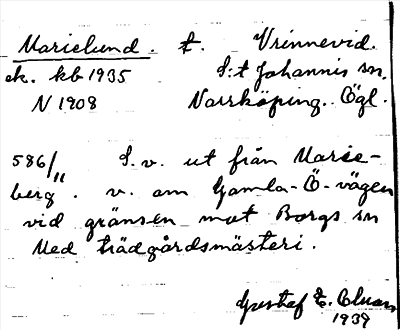 Marielund. t. Vrinnevid.
ek. kb 1935 S:t Johannis sn.
N 1908 Norrköping. Ögl.
586/11 S.v. ut från Marie-
berg. v. om Gamla-Ö-vägen
vid gränsen mot Borgs sn
Med trädgårdsmästeri.
Gustaf E.
1939